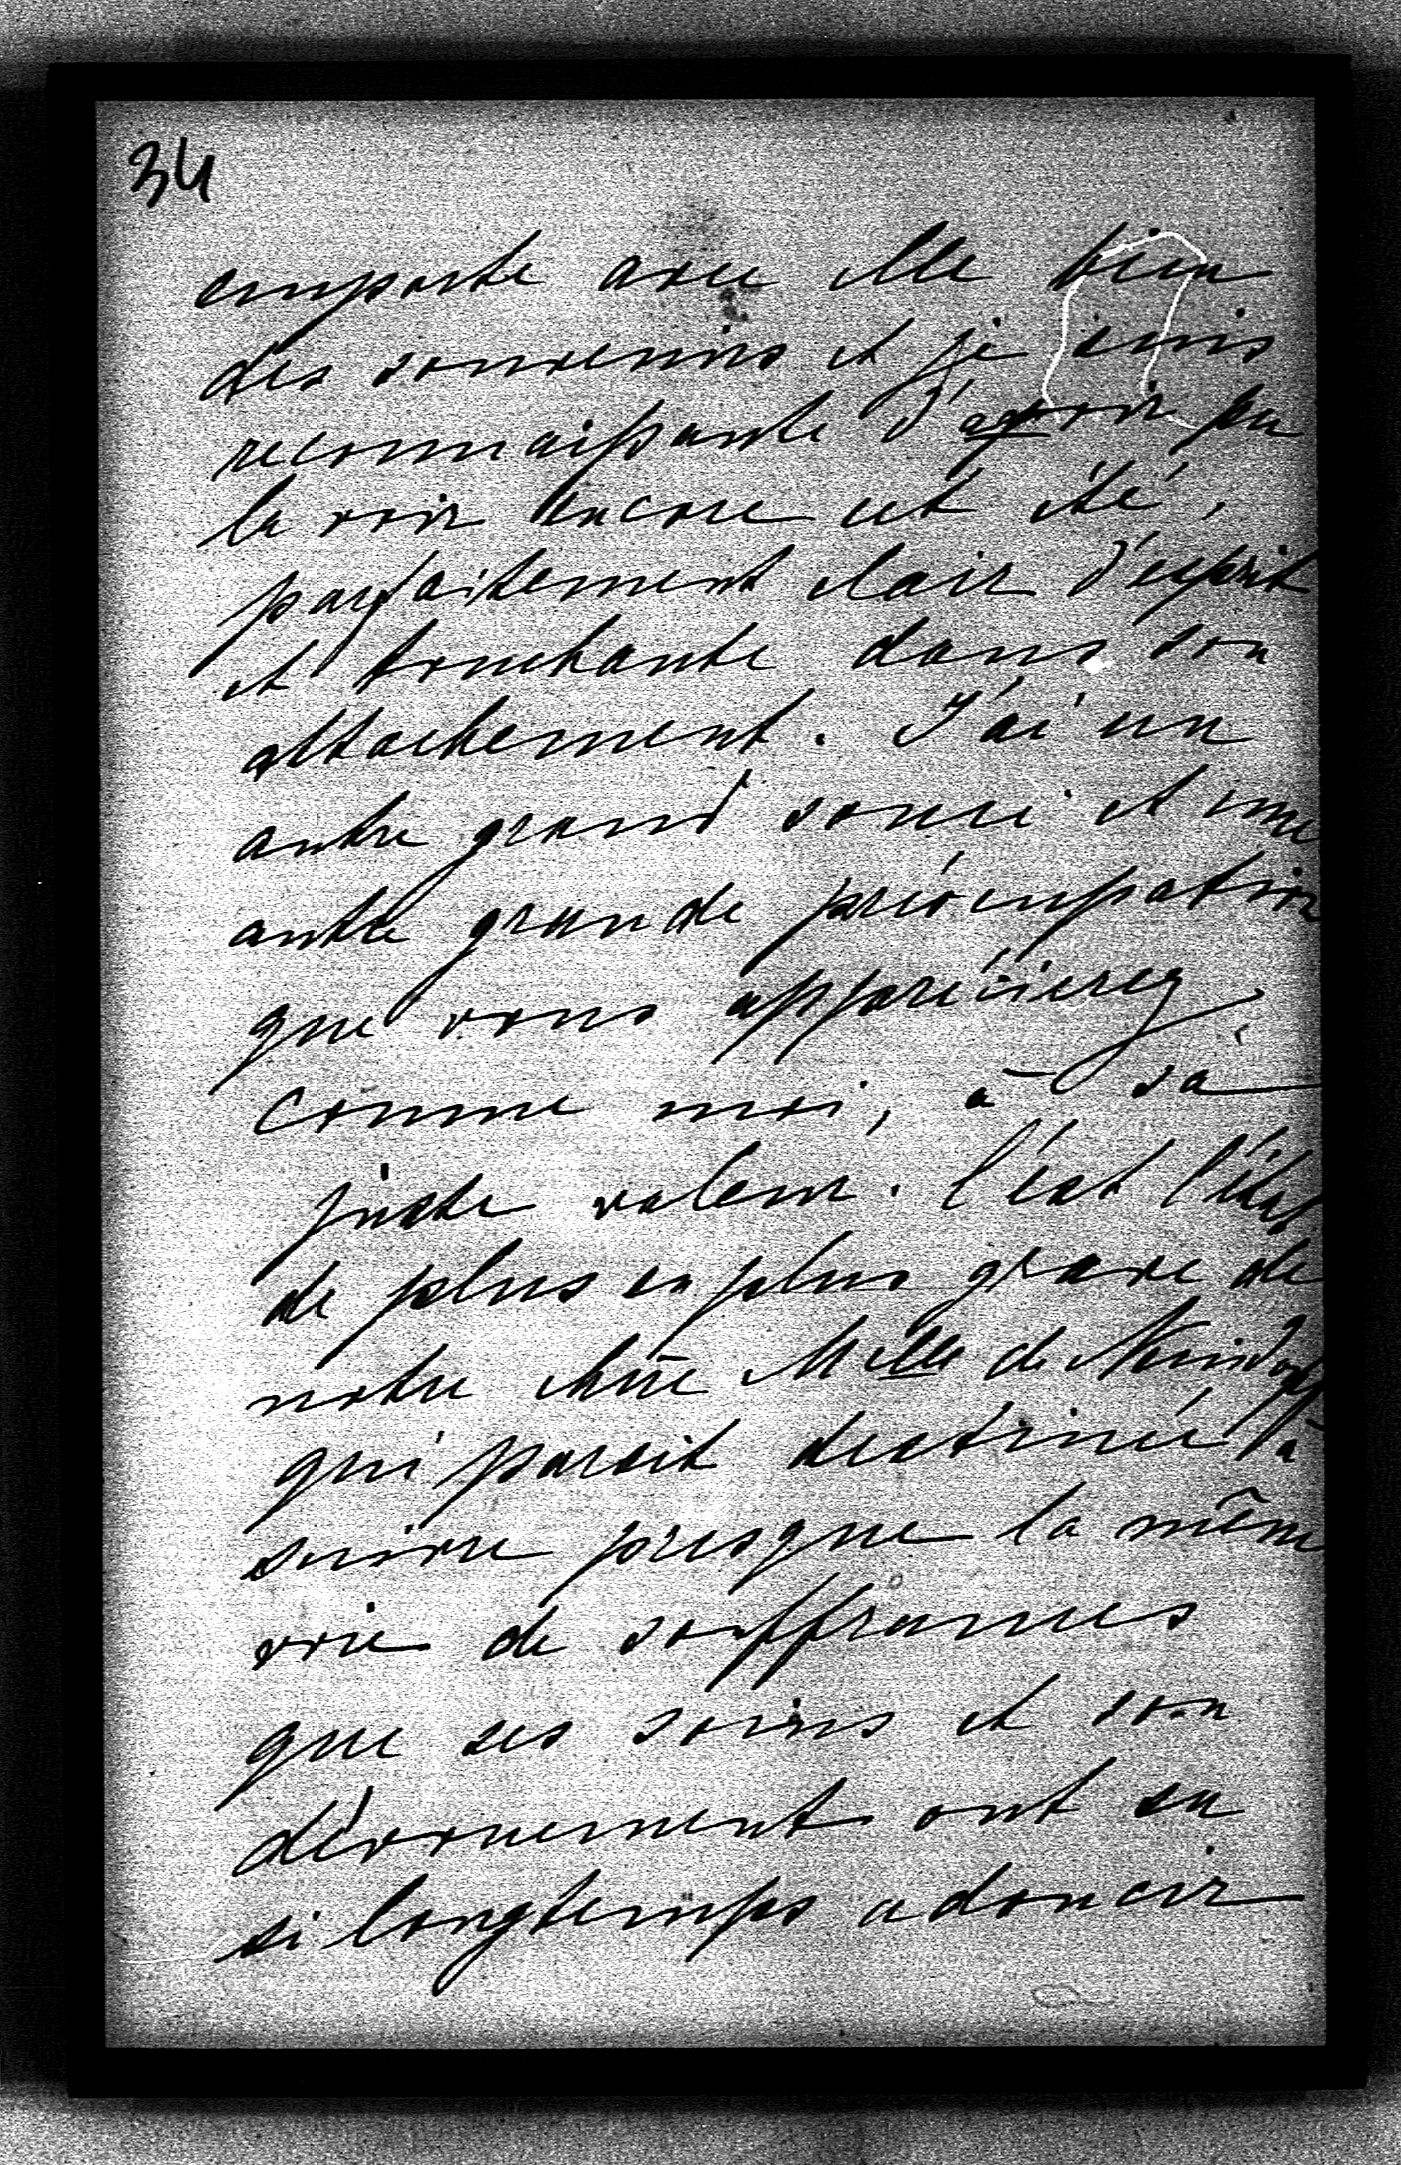 34
emporte avec elle bien
des souvenirs et je suis
reconnaissante d'avoir pu
la voir encore cet été,
parfaitement clair d'esprit
et touchante dans son
attachement. J'ai un
autre grand souci et une
autre grande préoccupation
que vous apprécierez,
comme moi, à sa
juste valeur. C'est l'état
de plus en plus grave de
notre chère Melle de
qui parait destinée à
suivre presque la même
voie de souffrances
que ses soins et son
dévouement ont su
si longtemps adoucir